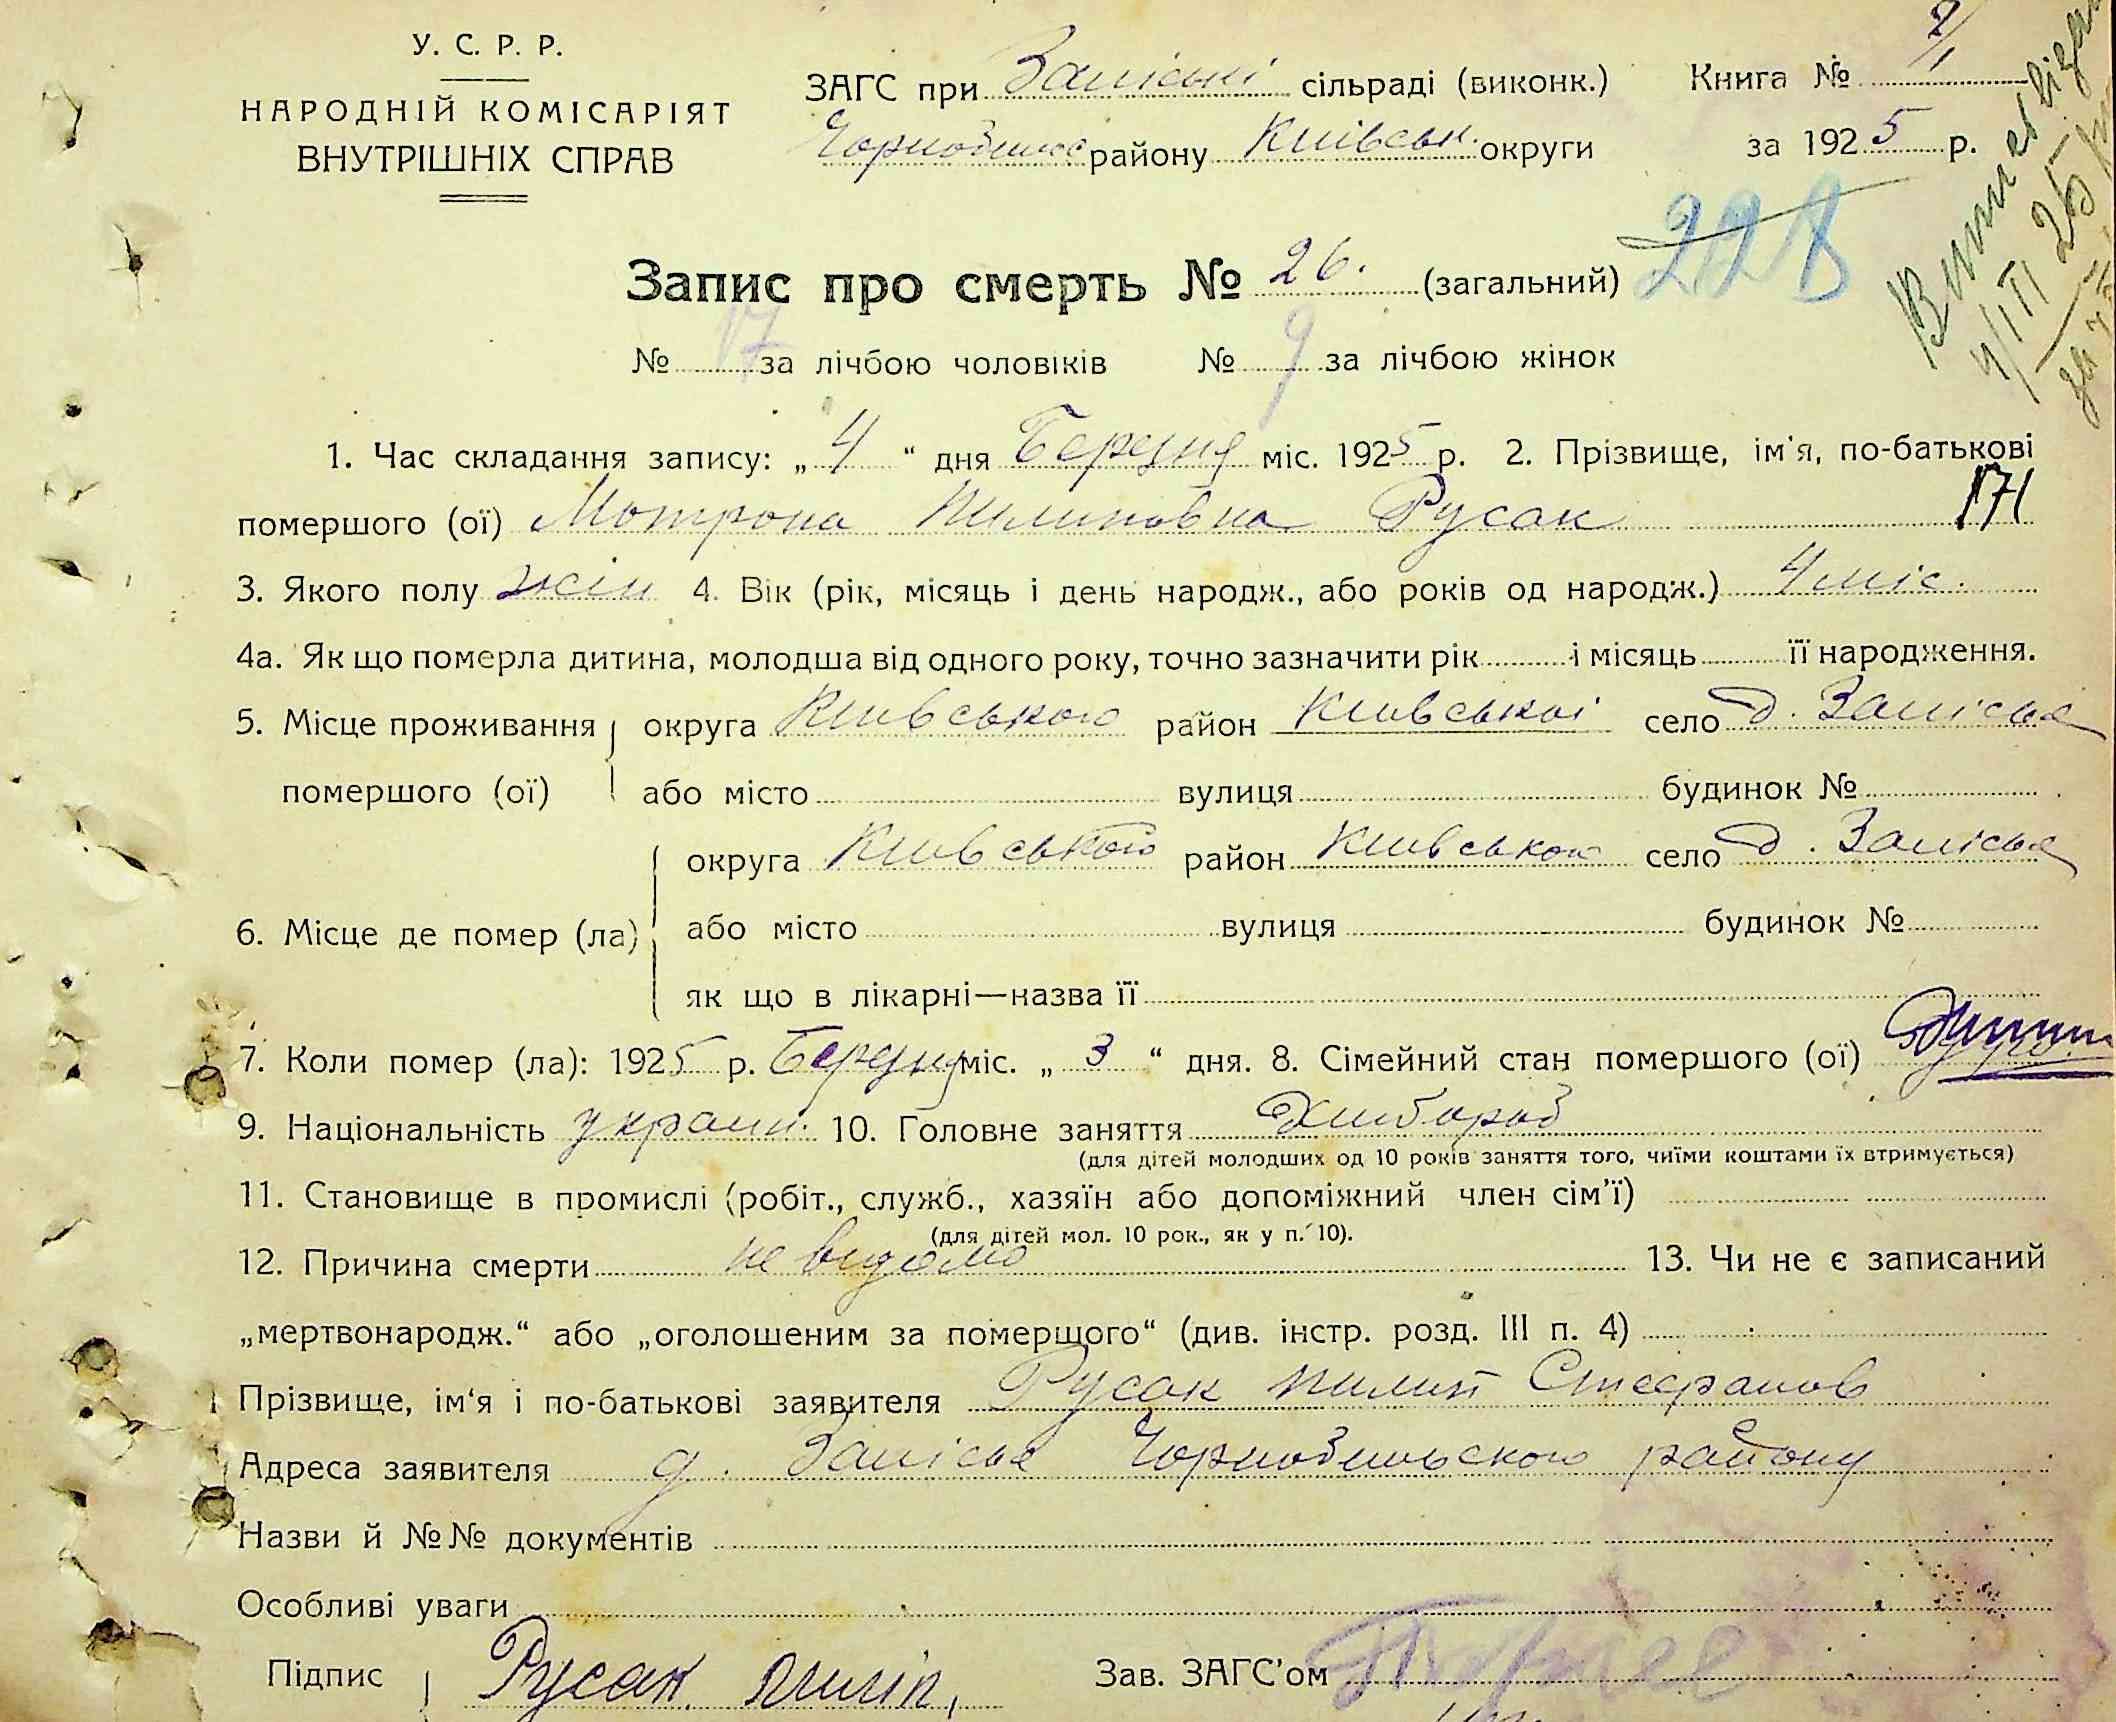 У. С. Р. Р.
НАРОДНІЙ КОМІСАРІЯТ
ВНУТРІШНІХ СПРАВ
ЗАГС при Заліські сільраді (виконк.) Книга №
Чорнобильс району Київськ. округи за 1925 р.
Запис про смерть № 26. (загальний) 228
№ 17 за лічбою чоловіків № 9 за лічбою жінок
1. Час складання запису: „4“ дня Березня міс. 1925 р. 2. Прізвище, ім'я, по-батькові
помершого (ої) Мотрона Пилиповна Русак 171
3. Якого полу жін 4. Вік (рік, місяць і день народж., або років од народж.) 4 міс.
4а. Як що померла дитина, молодша від одного року, точно зазначити рік і місяць її народження.
5. Місце проживання округа Київського район Київської село д. Залісья
помершого (ої) або місто вулиця будинок №
округа Київського район Київського село д. Залісья
6. Місце де помер (ла) або місто вулиця будинок №
як що в лікарні—назва її
7. Коли помер (ла): 1925 р. Березня міс. „3“ дня. 8. Сімейний стан помершого (ої)
9. Національність украин. 10. Головне заняття Хлибороб
(для дітей молодших од 10 років заняття того, чиїми коштами їх втримується)
11. Становище в промислі (робіт., служб., хазяїн або допоміжний член сім'ї)
(для дітей мол. 10 рок., як у п. 10).
12. Причина смерти не видомо 13. Чи не є записаний
„мертвонародж.“ або „оголошеним за померщого“ (див. інстр. розд. III п. 4)
Прізвище, ім'я і по-батькові заявителя Русак Пилип Стефанов
Адреса заявителя д. Залісья Чорнобильського району
Назви й №№ документів
Особливі уваги
Підпис Русак Пиліп, Зав. ЗАГС'ом